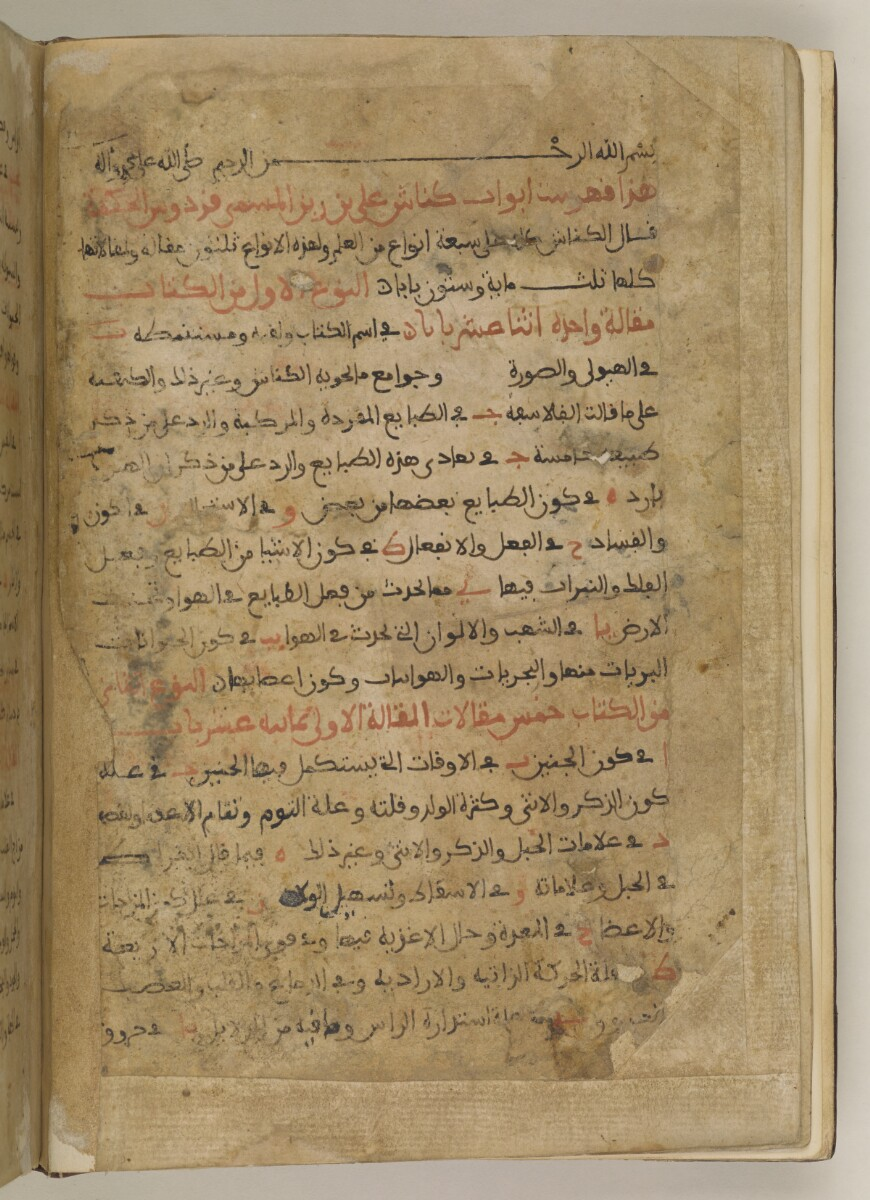 بسم الله الرحمن الرحيم صلى الله على محمد وآله
هذا فهرست ابواب كناش علي بن ربن المسمى فردوس الحكمة
قال الكناش كله على سبعة انواع من العلم ولهذه الانواع ثلثون مقالة ولمقالاتها
كلها ثلث ماية وستون بابا النوع الاول من الكتاب
مقالة واحدة اثنا عشر بابا ا في اسم الكتاب ب
في الهيولى والصورة وجوامع ما يحويه الكناش وغير ذلك والكيفية
على ما قالت الفلاسفة ج في الطبايع المفردة والمركبة والرد على من ذكر
طبيعة خامسة د في تعادى هذه الطبايع والرد على من ذكر ان الهوا
بارد ه في كون الطبايع بعضها من بعض و في الاستحالة ز في الكون
والفساد ح في الفعل والانفعال ط في كون الاشيا من الطبايع وفعل
الفلك والنيرات فيها ي مما يحدث من فعل الطبايع في الهوا
الارض يا في الشهب والالوان التي تحدث في الهوا يب في كون الحيوانات
البريات منها والبحريات والهوائيات وكون اعضائها النوع الثاني
من الكتاب خمس مقالات المقالة الاولى ثمانية عشر بابا
ا في كون الجنين ب في الاوقات التي يستكمل فيها الجنين ج في علة
كون الذكر والانثى وكثرة الولد وقلته وعلة التوم وتمام الاعضا
د في علامات الحبل والذكر والانثى وغير ذلك ه فيما قال
في الحبل وعلاماته و في الاسقاط وتسهيل الولاد ز في علل المزاجات
والاعضا ح في المعدة وحال الاغذية فيها وفي قوى المزاجات الاربعة
ط علة الحركة الذاتية والارادية وفي الدماغ والقلب والعصب
علة استدارة الراس وما فيه من الدلايل يا في حروف